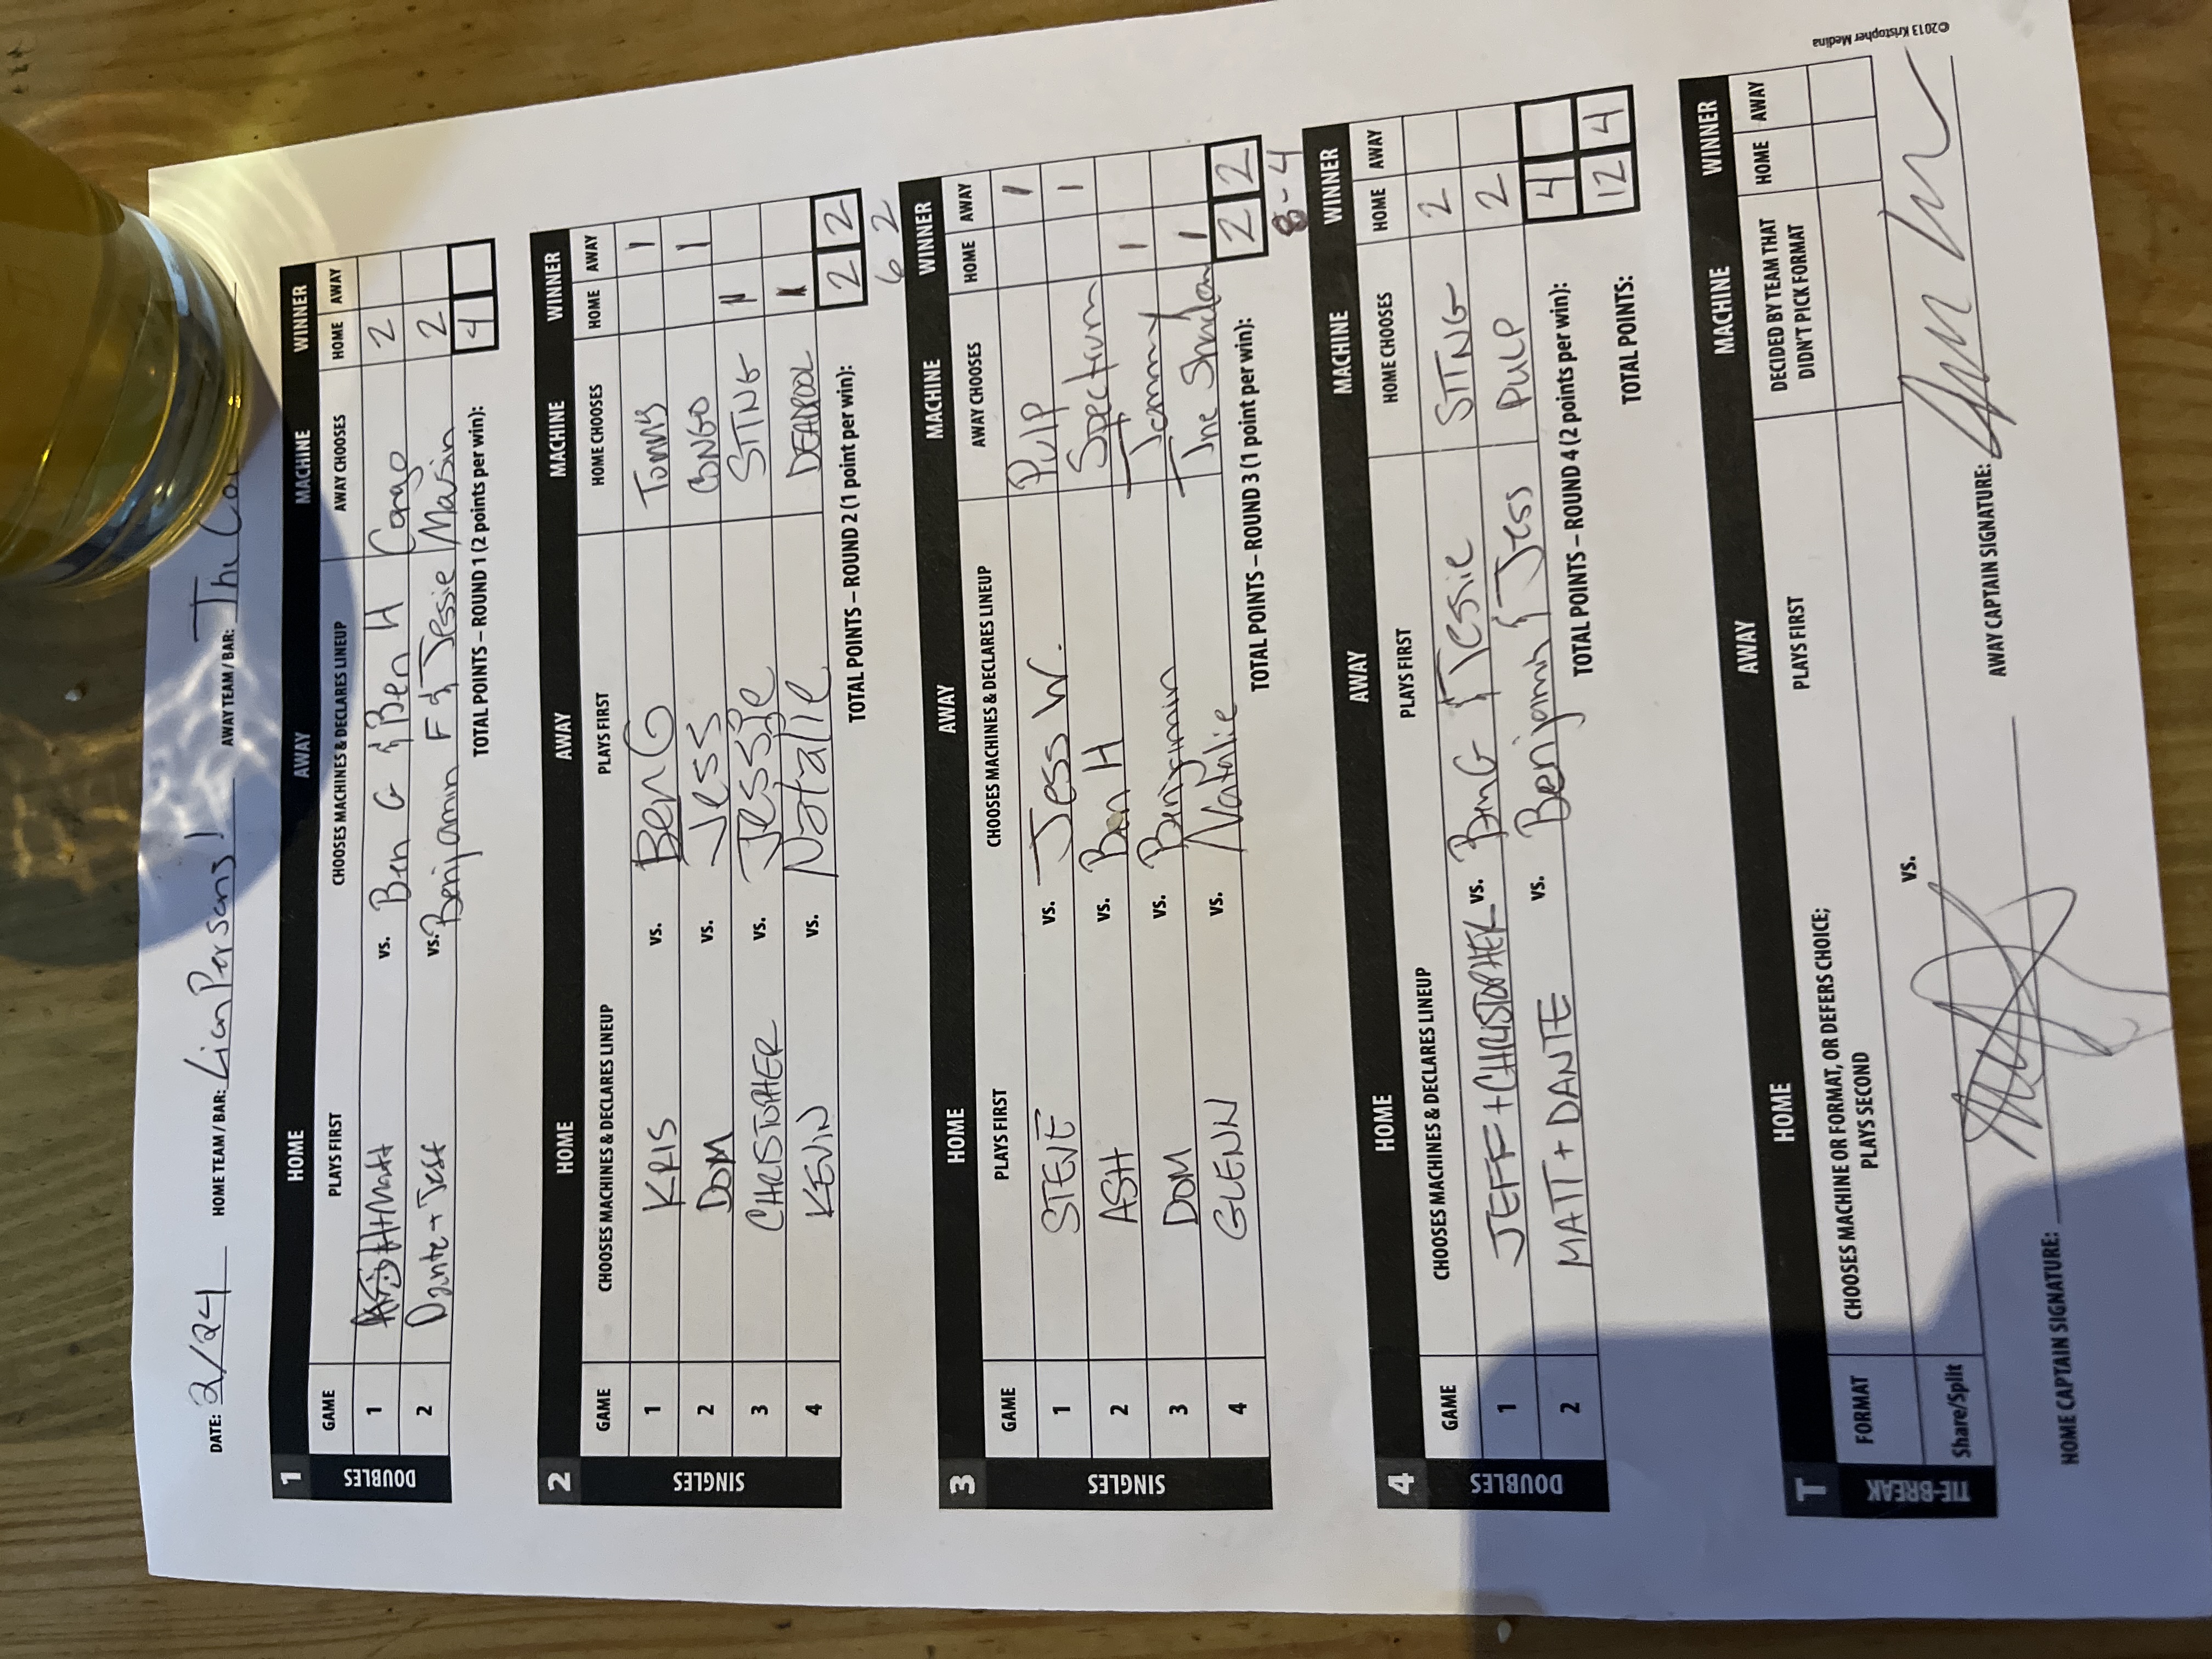 DATE: 2/24 HOME TEAM / BAR: Lion Persons! AWAY TEAM / BAR: The
1 HOME AWAY MACHINE WINNER
GAME PLAYS FIRST CHOOSES MACHINES & DECLARES LINEUP AWAY CHOOSES HOME AWAY
DOUBLES
1 Matt vs. Ben G & Ben H Congo 2
2 Dante + Jeff vs. Benjamin F & Jessie Martian 2
TOTAL POINTS – ROUND 1 (2 points per win): 4
2 HOME AWAY MACHINE WINNER
GAME CHOOSES MACHINES & DECLARES LINEUP PLAYS FIRST HOME CHOOSES HOME AWAY
SINGLES
1 KRIS vs. Ben G TOMMY 1
2 DOM vs. Jess CONGO 1
3 CHRISTOPHER vs. Jessie STTNG 1
4 KEVIN vs. Natalie DEADPOOL 1
TOTAL POINTS – ROUND 2 (1 point per win): 2 2
6 2
3 HOME AWAY MACHINE WINNER
GAME PLAYS FIRST CHOOSES MACHINES & DECLARES LINEUP AWAY CHOOSES HOME AWAY
SINGLES
1 STEVE vs. Jess W. Pulp 1
2 ASH vs. Ben H Spectrum 1
3 DOM vs. Benjamin Tommy 1
4 GLENN vs. Natalie The Shadow 1
TOTAL POINTS – ROUND 3 (1 point per win): 2 2
8-4
4 HOME AWAY MACHINE WINNER
GAME CHOOSES MACHINES & DECLARES LINEUP PLAYS FIRST HOME CHOOSES HOME AWAY
DOUBLES
1 JEFF + CHRISTOPHER vs. Ben G & Jessie STTNG 2
2 MATT + DANTE vs. Benjamin & Jess PULP 2
TOTAL POINTS – ROUND 4 (2 points per win): 4
TOTAL POINTS: 12 4
T HOME AWAY MACHINE WINNER
FORMAT CHOOSES MACHINE OR FORMAT, OR DEFERS CHOICE; PLAYS SECOND PLAYS FIRST DECIDED BY TEAM THAT DIDN'T PICK FORMAT HOME AWAY
TIE-BREAK
Share/Split vs.
HOME CAPTAIN SIGNATURE: AWAY CAPTAIN SIGNATURE:
©2013 Kristopher Medina